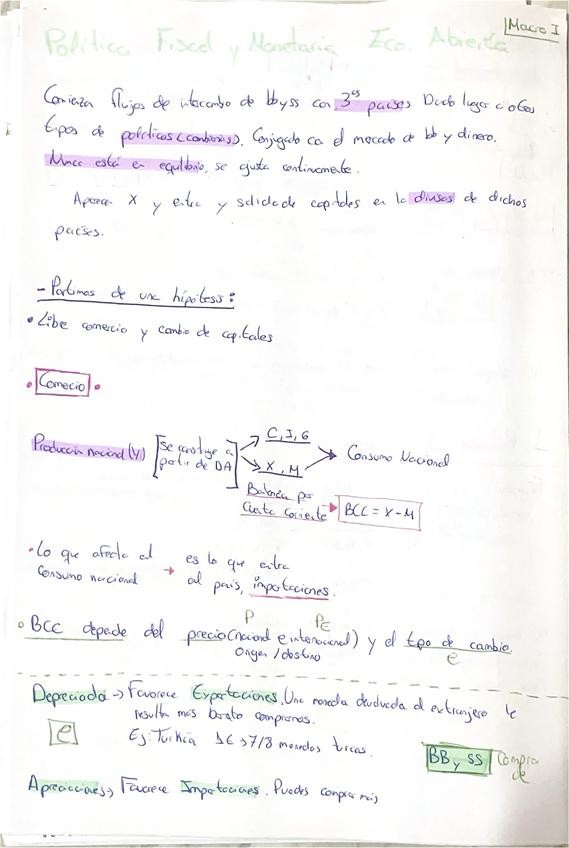 Macro I
Política Fiscal y Monetaria Eco. Abierta
Comienza flujos de intercambio de bb y ss con 3os paises Dado lugar a otros
tipos de políticas (cambiarias). Conjugado con el mercado de bb y dinero.
Nunca está en equilibrio, se ajusta continuamente.
Aparecen X y entra y salida de capitales en la divisas de dichos
países.
- Partimos de una hipótesis:
• Libe comercio y cambio de capitales
• Comecio •
Producción nacional (Y)
[se construye a
partir de DA]
C, I, G
X, M
Consumo Nacional
Balanza por
Cuenta Corriente → BCC = X - M
• Lo que afecta al
Consumo nacional → es lo que entra
al país, importaciones.
P PE
• BCC depende del precio (nacional e internacional) y el tipo de cambio.
Origen / destino e
Depreciada → Favorece Exportaciones. Una moneda devaluada al extranjero le
resulta más barato comprarnos.
e
Ej: Turkía 1€ → 7/8 monedas turcas.
BB y SS Compra
de
Apreaciones → Favorece Importaciones. Puedes comprar más